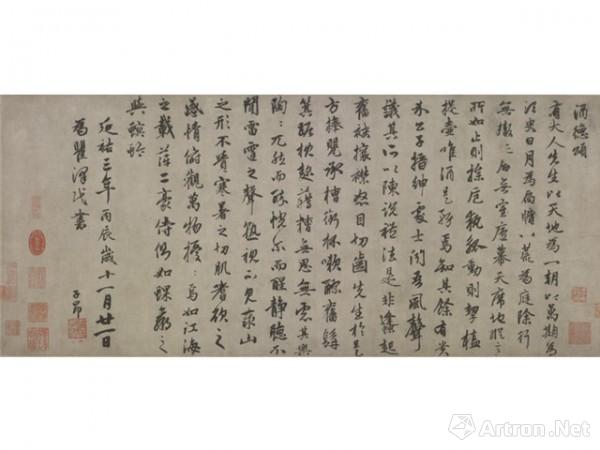 酒德頌
有大人先生以天地為一朝以萬期為
須臾日月為扃牖八荒為庭除行
無轍跡居無室廬幕天席地縱意
所如止則操卮執觚動則挈榼
提壺唯酒是務焉知其餘有貴
介公子搢紳處士聞吾風聲
議其所以陳說禮法是非蠭起
奮袂攘襟怒目切齒先生於是
方捧甖承槽銜杯漱醪奮髯
箕踞枕麴藉糟無思無慮其樂
陶〻兀然而醉恍爾而醒靜聽不
聞雷霆之聲熟視不見泰山
之形不覺寒暑之切肌嗜欲之
感情俯觀萬物擾〻焉如江海
之載萍二豪侍側如蜾蠃之
與螟蛉
延祐三年丙辰歲十一月廿一日
為瞿澤書
子昂
Artron.Net